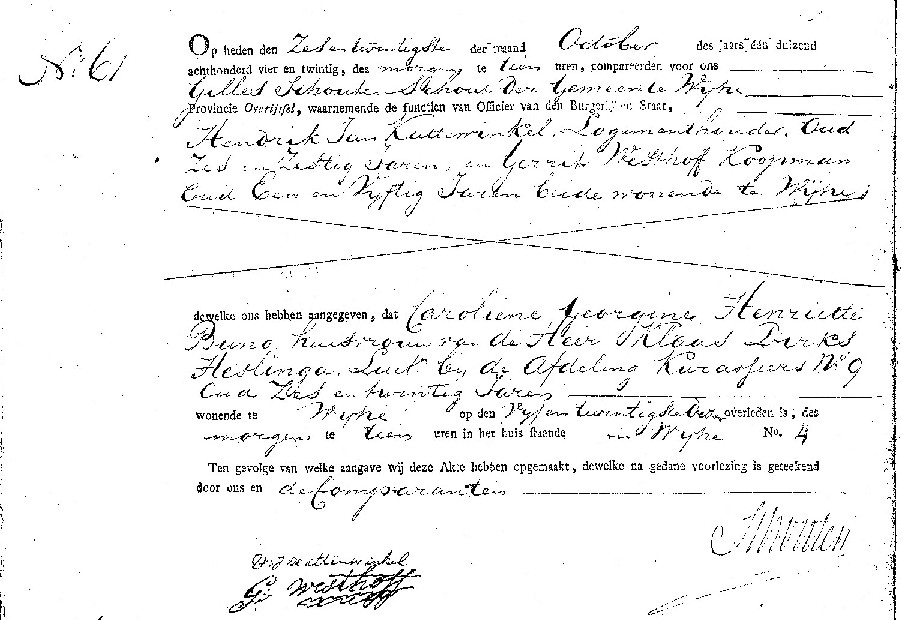 No 61
Op heden den Zes en twintigste der maand October des jaars één duizend
achthonderd vier en twintig, des morgens te tien uren, compareerden voor ons
Gilles Schouten Schout der Gemeente Wyhe
Provincie Overijssel, waarnemende de functien van Officier van den Burgerlijken Staat,
Hendrik Jan Kattewinkel Logementhouder Oud
Zes en Zestig Jaren, en Gerrit Westhoff Koopman
Oud Een en Vyftig Jaren beide wonende te Wyhe
dewelke ons hebben aangegeven, dat Caroliene Georgine Henriette
Bung huisvrouw van de Heer Klaas Dirks
Heslinga Luit by de Afdeling Kurassiers No 9
Oud Zes en twintig Jaren
wonende te Wyhe op den Vyf en twintigste dezer overleden is, des
morgens te tien uren in het huis staande in Wyhe No. 4
Ten gevolge van welke aangave wij deze Akte hebben opgemaakt, dewelke na gedane voorlezing is geteekend
door ons en de Comparanten
Schouten
H J Kattewinkel
G. Westhoff